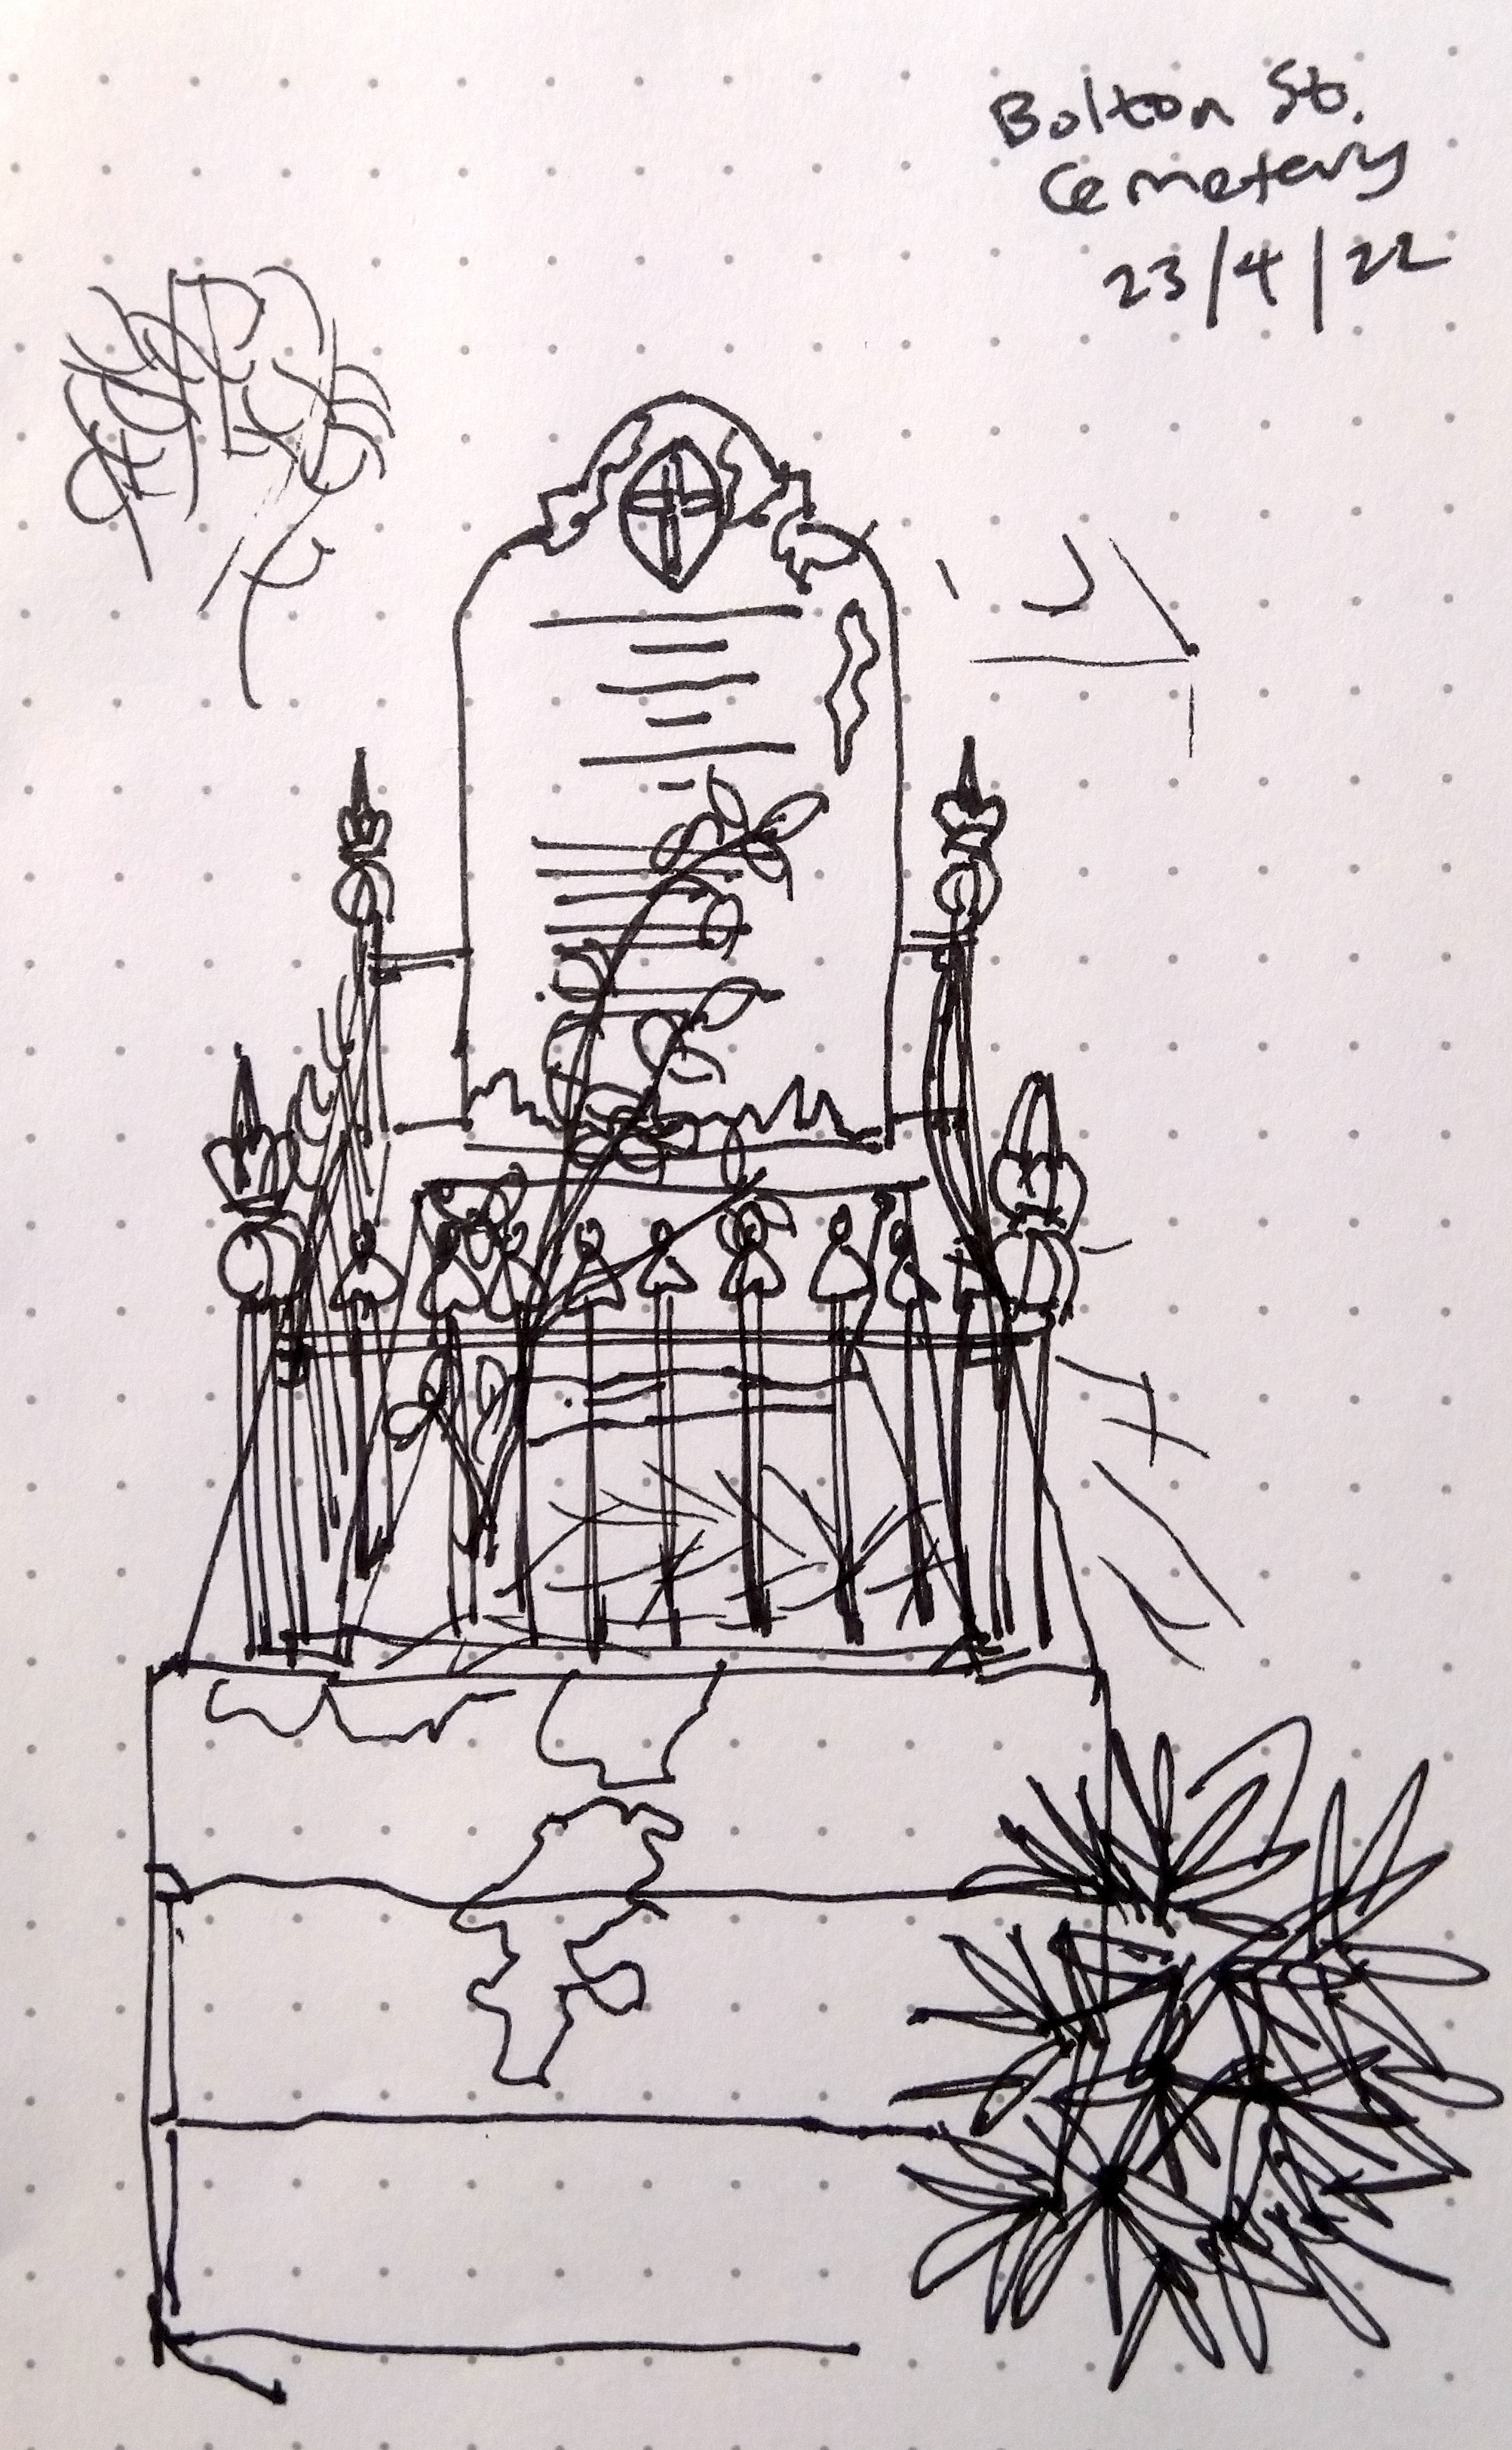 Bolton St.
Cemetery
23/4/22